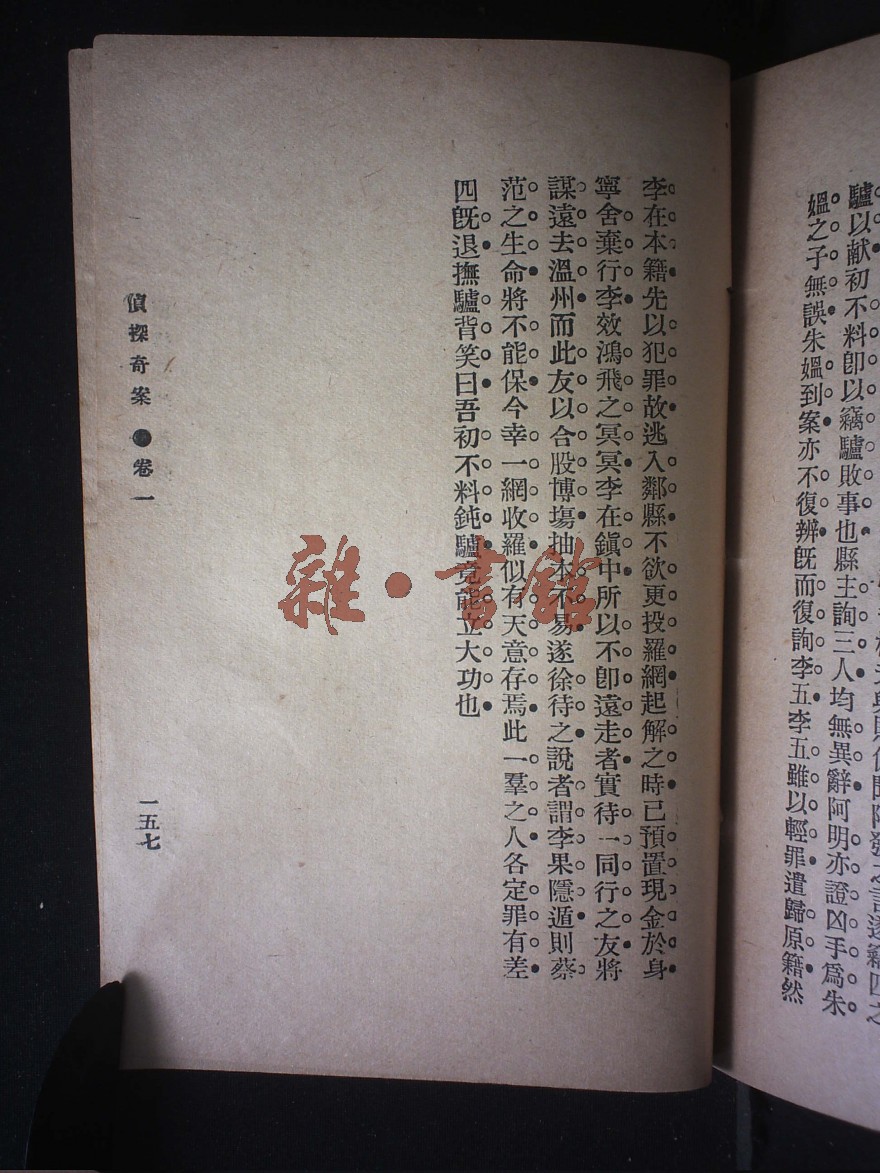 驢以献初不料卽以竊驢敗事也縣主詢三人均無異辭阿明亦證凶手爲朱
媼之子無誤朱媼到案亦不復辨旣而復詢李五李五雖以輕罪遣歸原籍然
李在本籍先以犯罪故逃入鄰縣不欲更投羅網起解之時已預置現金於身
寧舍棄行李效鴻飛之冥冥李在鎭中所以不卽遠走者實待一同行之友將
謀遠去溫州而此友以合股博塲抽本不易遂徐待之說者謂李果隱遁則蔡
范之生命將不能保今幸一網收羅似有天意存焉此一羣之人各定罪有差
四旣退撫驢背笑曰吾初不料鈍驢竟能立大功也
偵探奇案●卷一
一五七
雜·書館